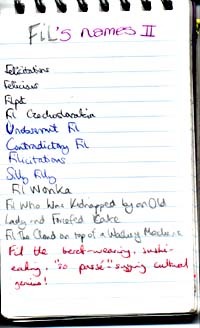 FiL's names II
Felicitations
Felicious
Fil Czechoslovakia
Undeserved Fil
Contradictory Fil
Filicitations
Silly Filly
Fil Wonka
Fil Who Was Kidnapped by an Old
Lady and Forcefed Cake
Fil The Cloud on top of a Washing Machine
Fil the beret-wearing, sushi-
eating, "so passé"-saying cultural
genius!